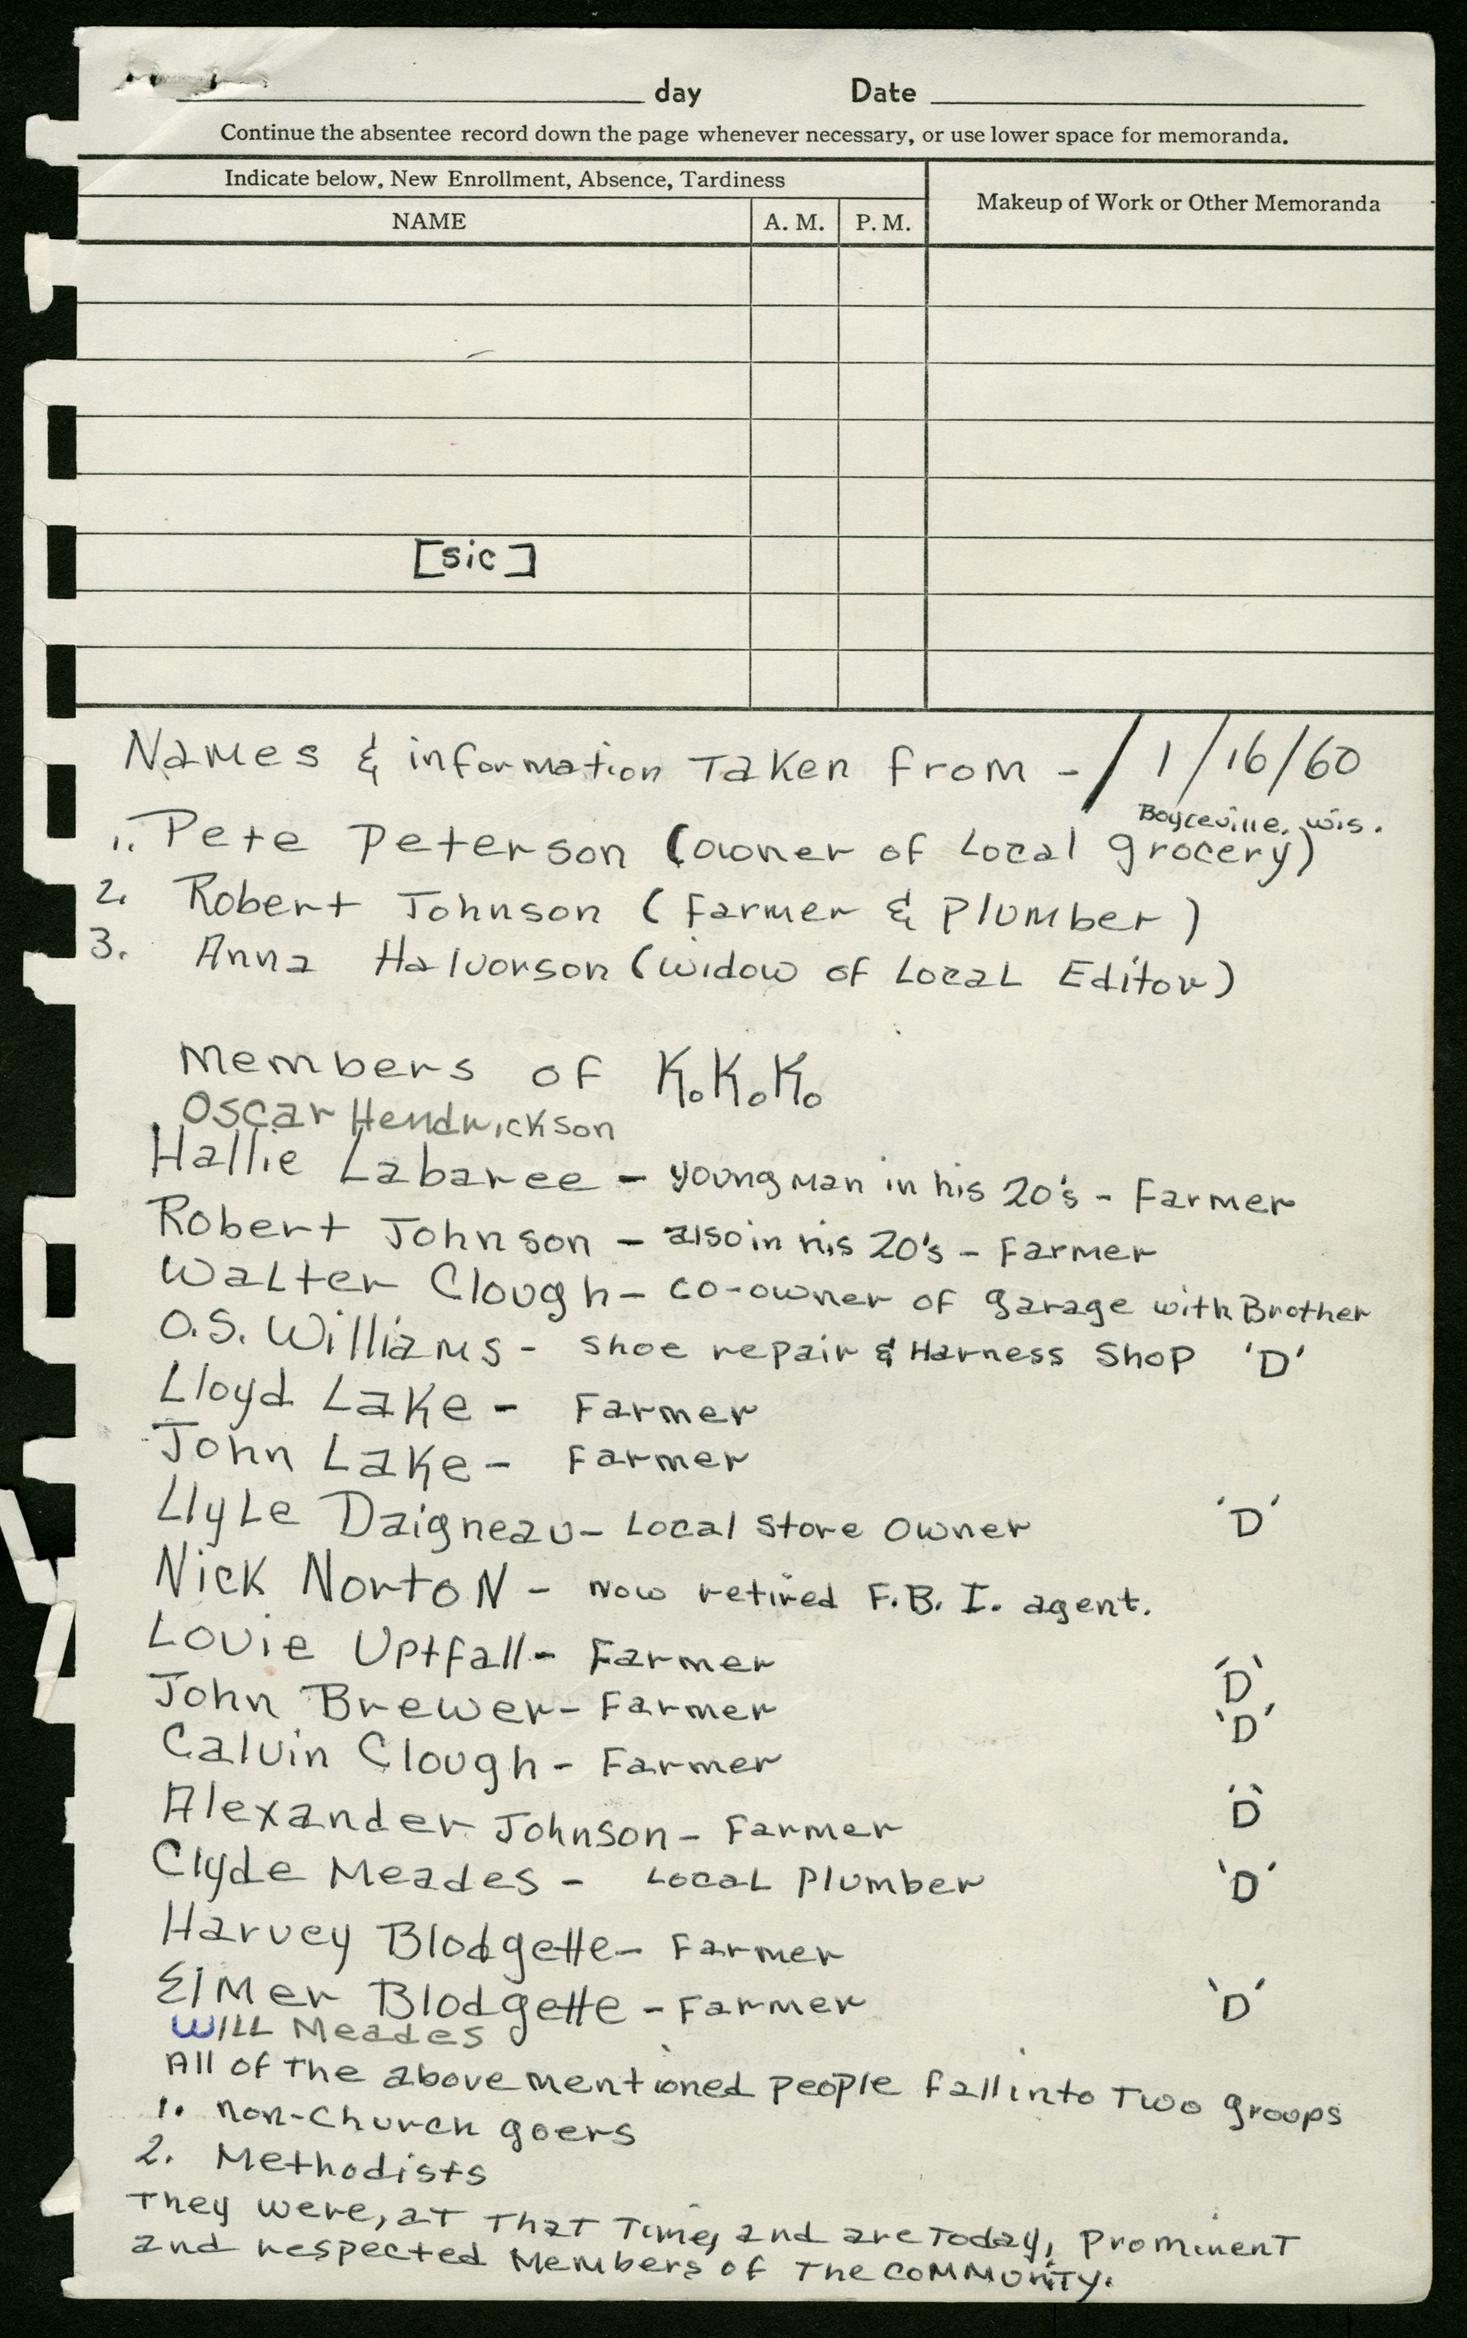 day Date
Continue the absentee record down the page whenever necessary, or use lower space for memoranda.
Indicate below, New Enrollment, Absence, Tardiness
Makeup of Work or Other Memoranda
NAME A. M. P. M.
[sic]
Names & information Taken from - / 1/16/60
Boyceville, Wis.
1. Pete Peterson (owner of Local grocery)
2. Robert Johnson (Farmer & Plumber)
3. Anna Halvorson (widow of Local Editor)
Members of K.K.K.
Oscar Hendrickson
Hallie Labaree - young man in his 20's - Farmer
Robert Johnson - also in his 20's - Farmer
Walter Clough - co-owner of garage with Brother
O.S. Williams - Shoe repair & Harness Shop 'D'
Lloyd Lake - Farmer
John Lake - Farmer
Llyle Daigneau - Local Store Owner 'D'
Nick Norton - now retired F.B.I. agent.
Louie Uptfall - Farmer 'D'
John Brewer - Farmer 'D'
Calvin Clough - Farmer
Alexander Johnson - Farmer 'D'
Clyde Meades - Local Plumber 'D'
Harvey Blodgette - Farmer
Elmer Blodgette - Farmer 'D'
Will Meades
All of the above mentioned people fall into two groups
1. non-church goers
2. Methodists
They were, at that time, and are today, prominent
and respected members of the community.